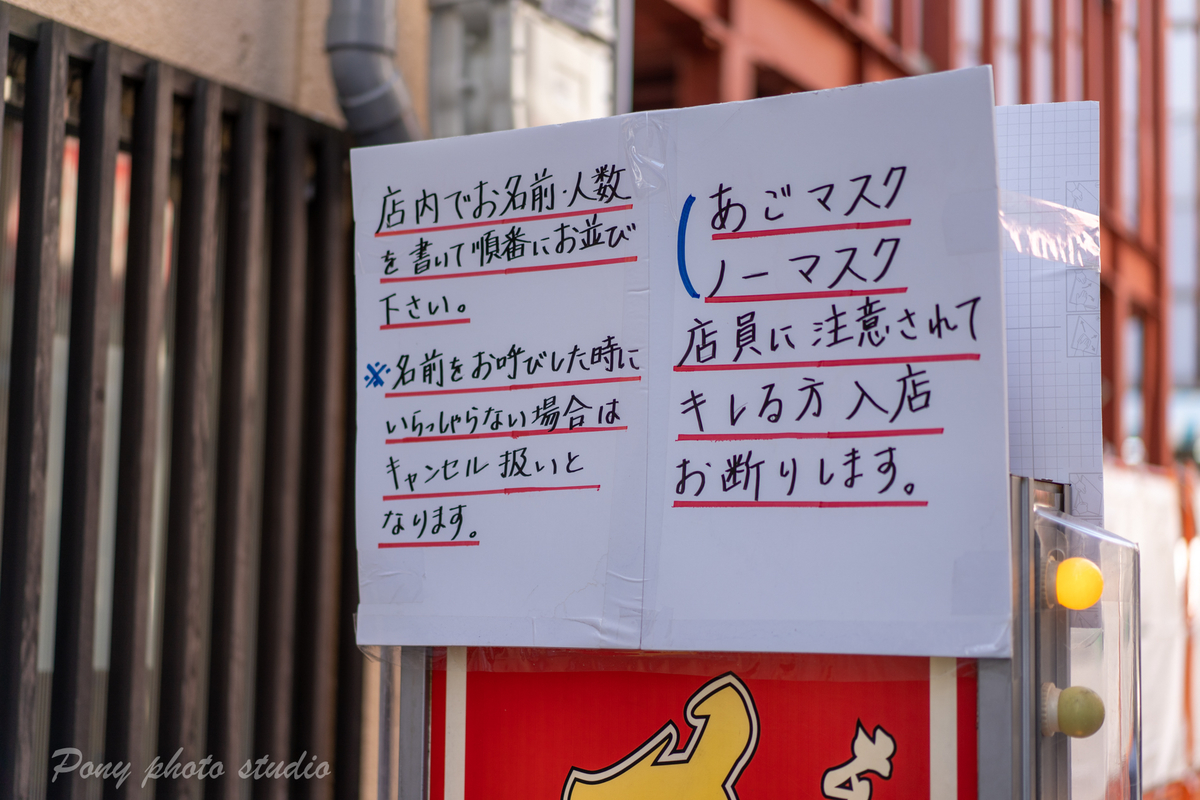 店内でお名前・人数
を書いて順番にお並び
下さい。
※名前をお呼びした時に
いらっしゃらない場合は
キャンセル扱いと
なります。
あごマスク
ノーマスク
店員に注意されて
キレる方入店
お断りします。
Pony photo studio